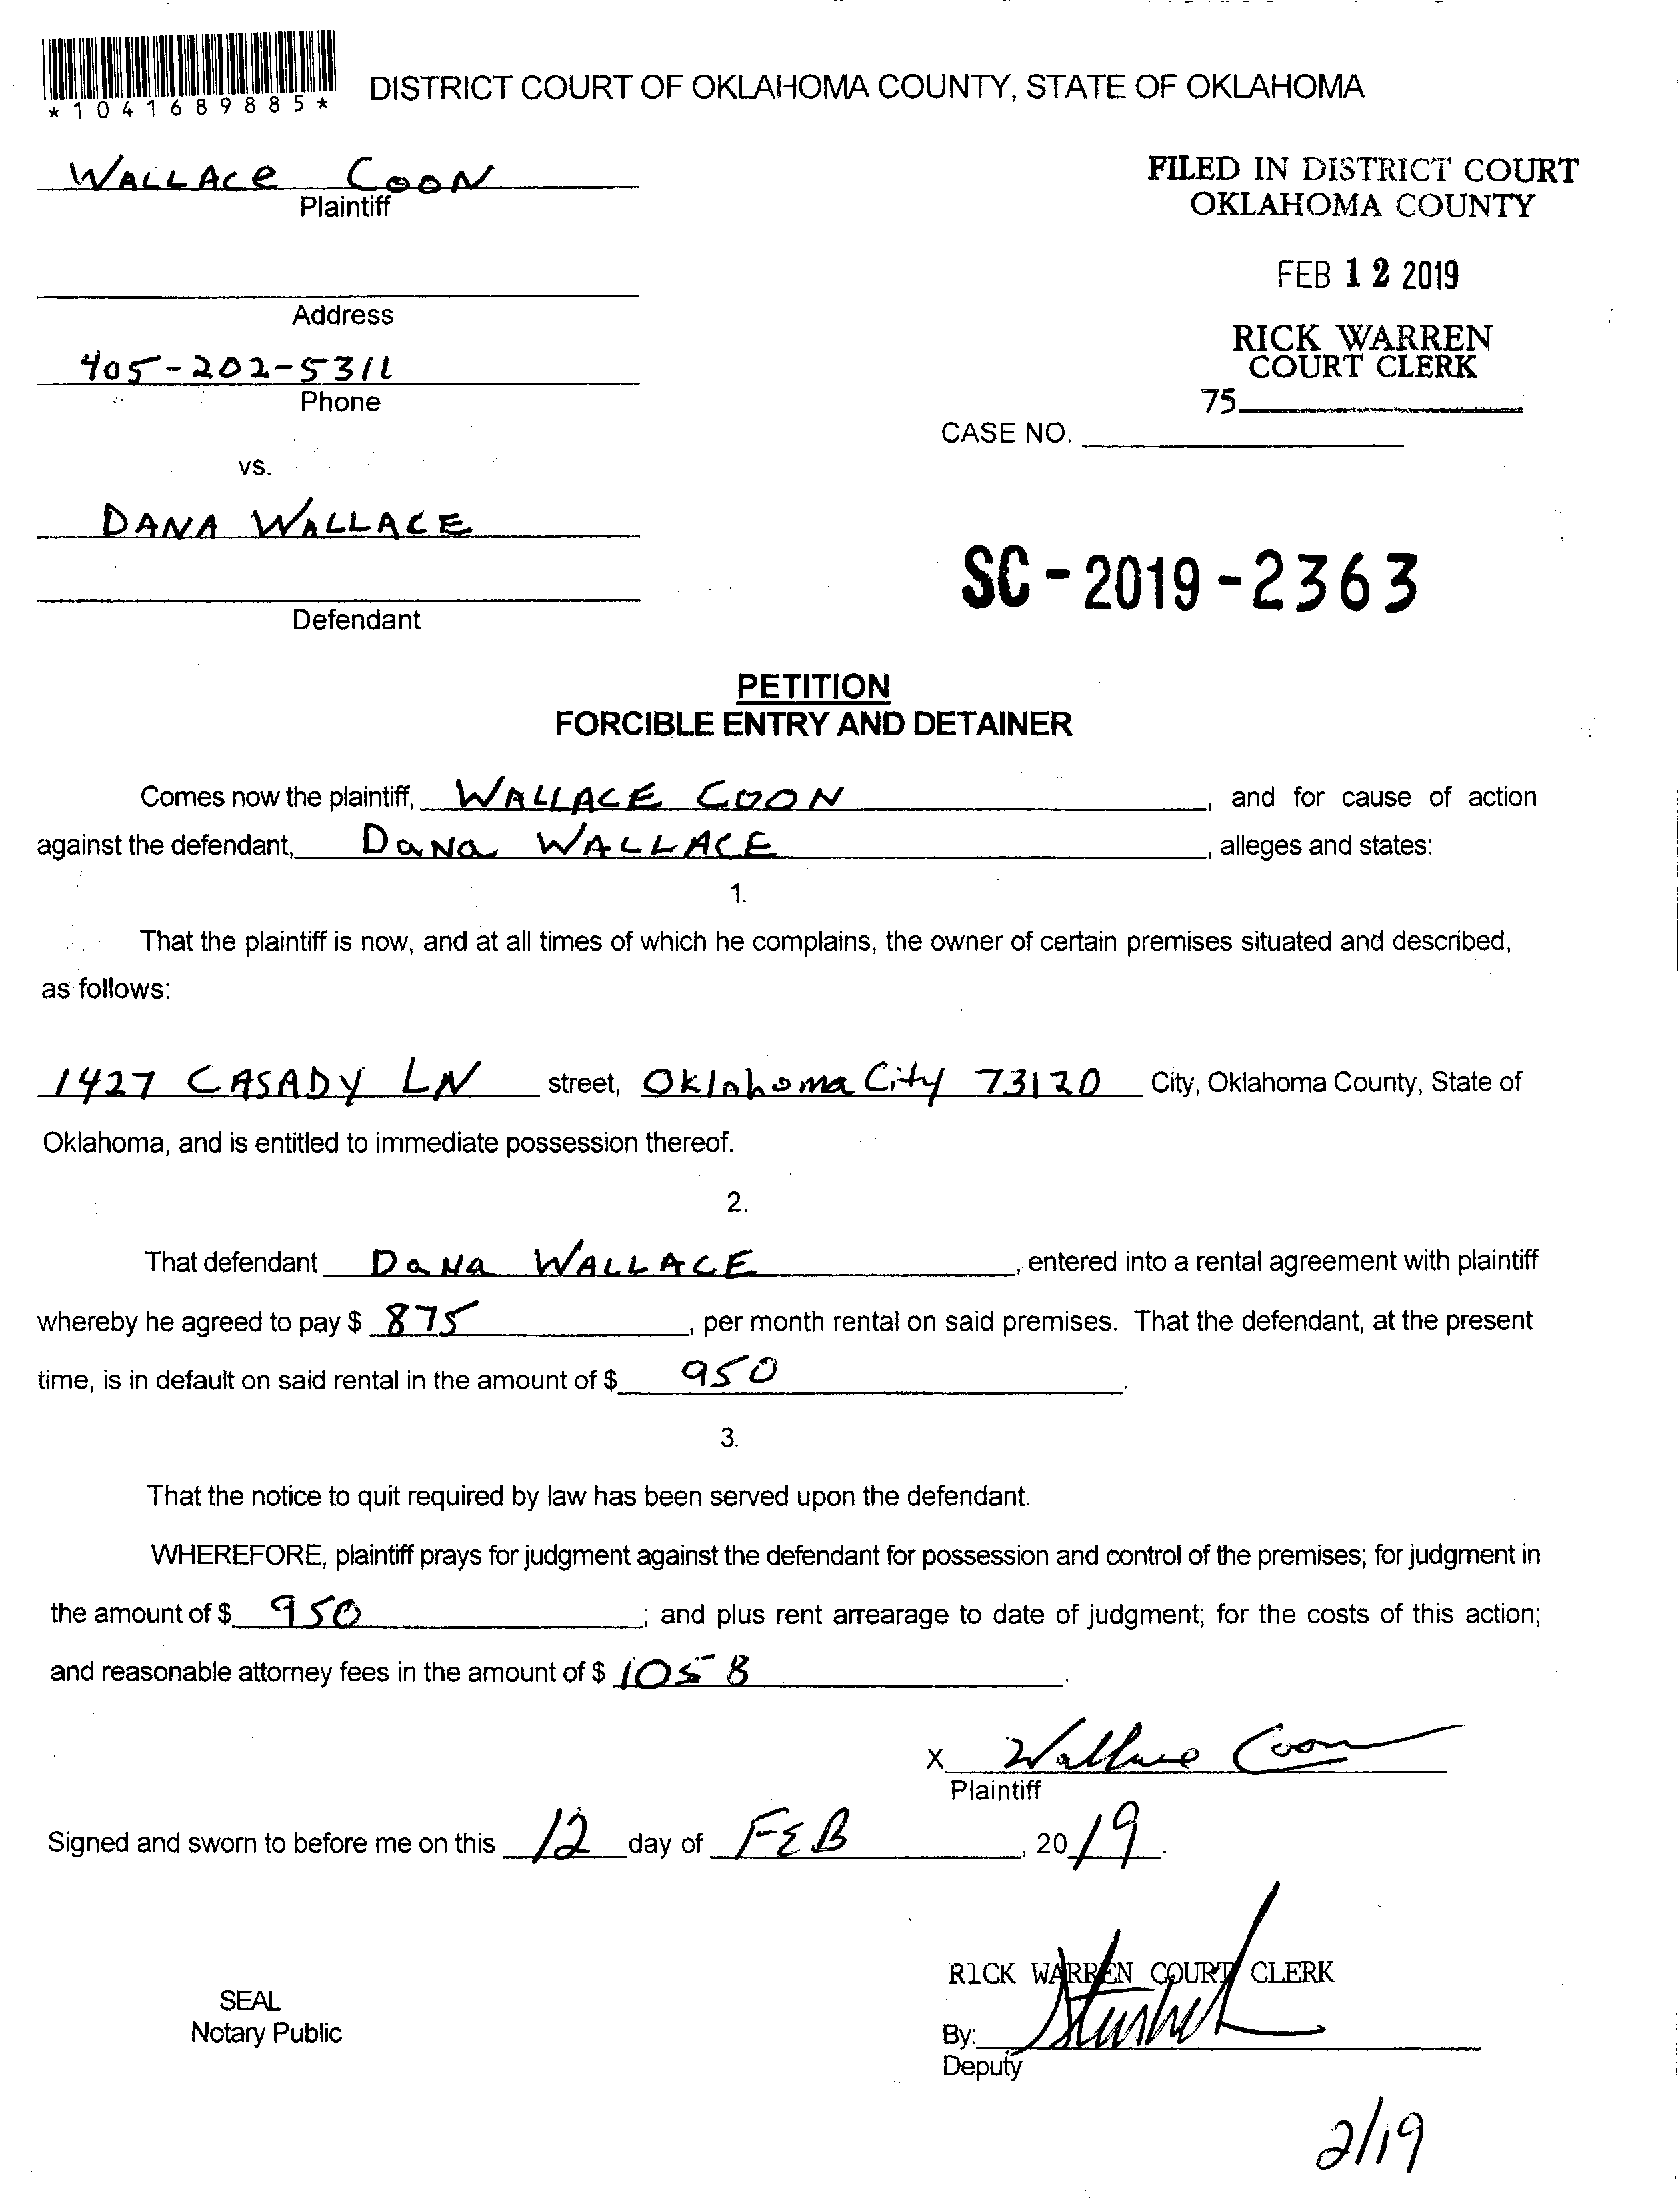 *1041689885*
DISTRICT COURT OF OKLAHOMA COUNTY, STATE OF OKLAHOMA
WALLACe COON
Plaintiff
FILED IN DISTRICT COURT
OKLAHOMA COUNTY
FEB 12 2019
RICK WARREN
COURT CLERK
75
Address
405-202-5311
Phone
CASE NO.
vs.
DANA WALLACE
SC-2019-2363
Defendant
PETITION
FORCIBLE ENTRY AND DETAINER
Comes now the plaintiff, WALLACE COON, and for cause of action
against the defendant, DaNa WALLACE, alleges and states:
1.
That the plaintiff is now, and at all times of which he complains, the owner of certain premises situated and described,
as follows:
1427 CASADY LN street, Oklahoma City 73120 City, Oklahoma County, State of
Oklahoma, and is entitled to immediate possession thereof.
2.
That defendant DaNa WALLACE, entered into a rental agreement with plaintiff
whereby he agreed to pay $ 875, per month rental on said premises. That the defendant, at the present
time, is in default on said rental in the amount of $ 950.
3.
That the notice to quit required by law has been served upon the defendant.
WHEREFORE, plaintiff prays for judgment against the defendant for possession and control of the premises; for judgment in
the amount of $ 950; and plus rent arrearage to date of judgment; for the costs of this action;
and reasonable attorney fees in the amount of $ 1058.
X Wallace Coon
Plaintiff
Signed and sworn to before me on this 12 day of FEB, 2019.
RICK WARREN COURT CLERK
SEAL
Notary Public
By:
Deputy
2/19